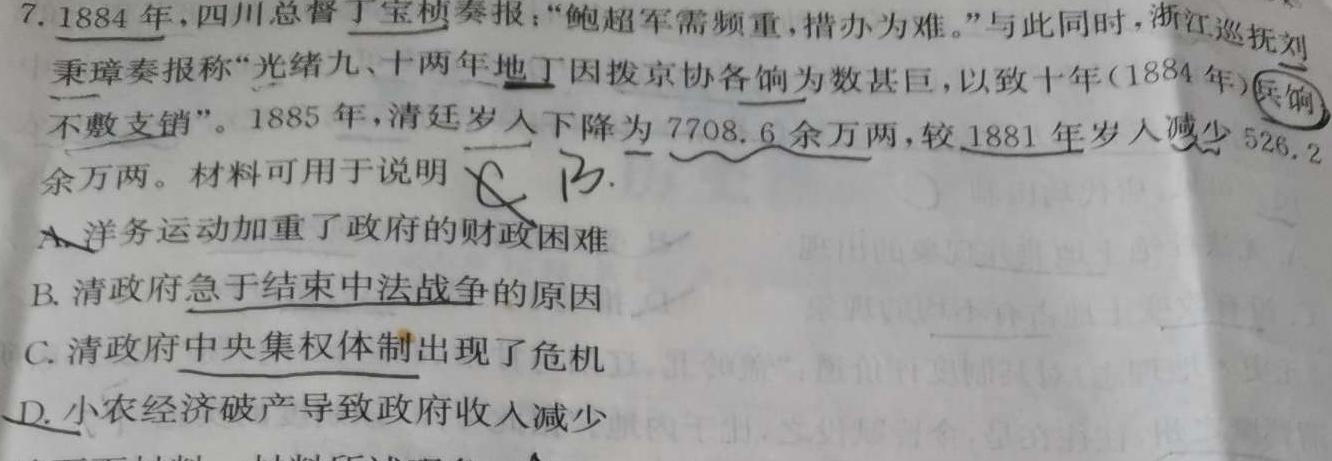 7. 1884 年,四川总督丁宝桢奏报:“鲍超军需频重,措办为难。”与此同时,浙江巡抚刘
秉璋奏报称“光绪九、十两年地丁因拨京协各饷为数甚巨,以致十年(1884 年)兵饷
不敷支销”。1885 年,清廷岁入下降为 7708.6 余万两,较 1881 年岁入减少 526.2
余万两。材料可用于说明 C B.
A. 洋务运动加重了政府的财政困难
B. 清政府急于结束中法战争的原因
C. 清政府中央集权体制出现了危机
D. 小农经济破产导致政府收入减少